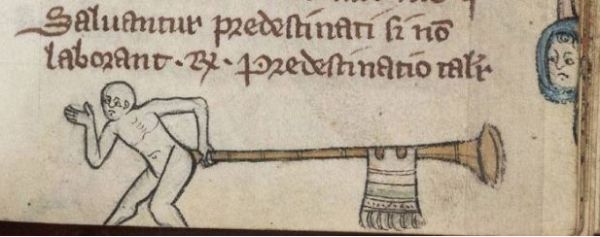 Saluantur predestinati si nō
laborant · R · Predestinatio talr̄